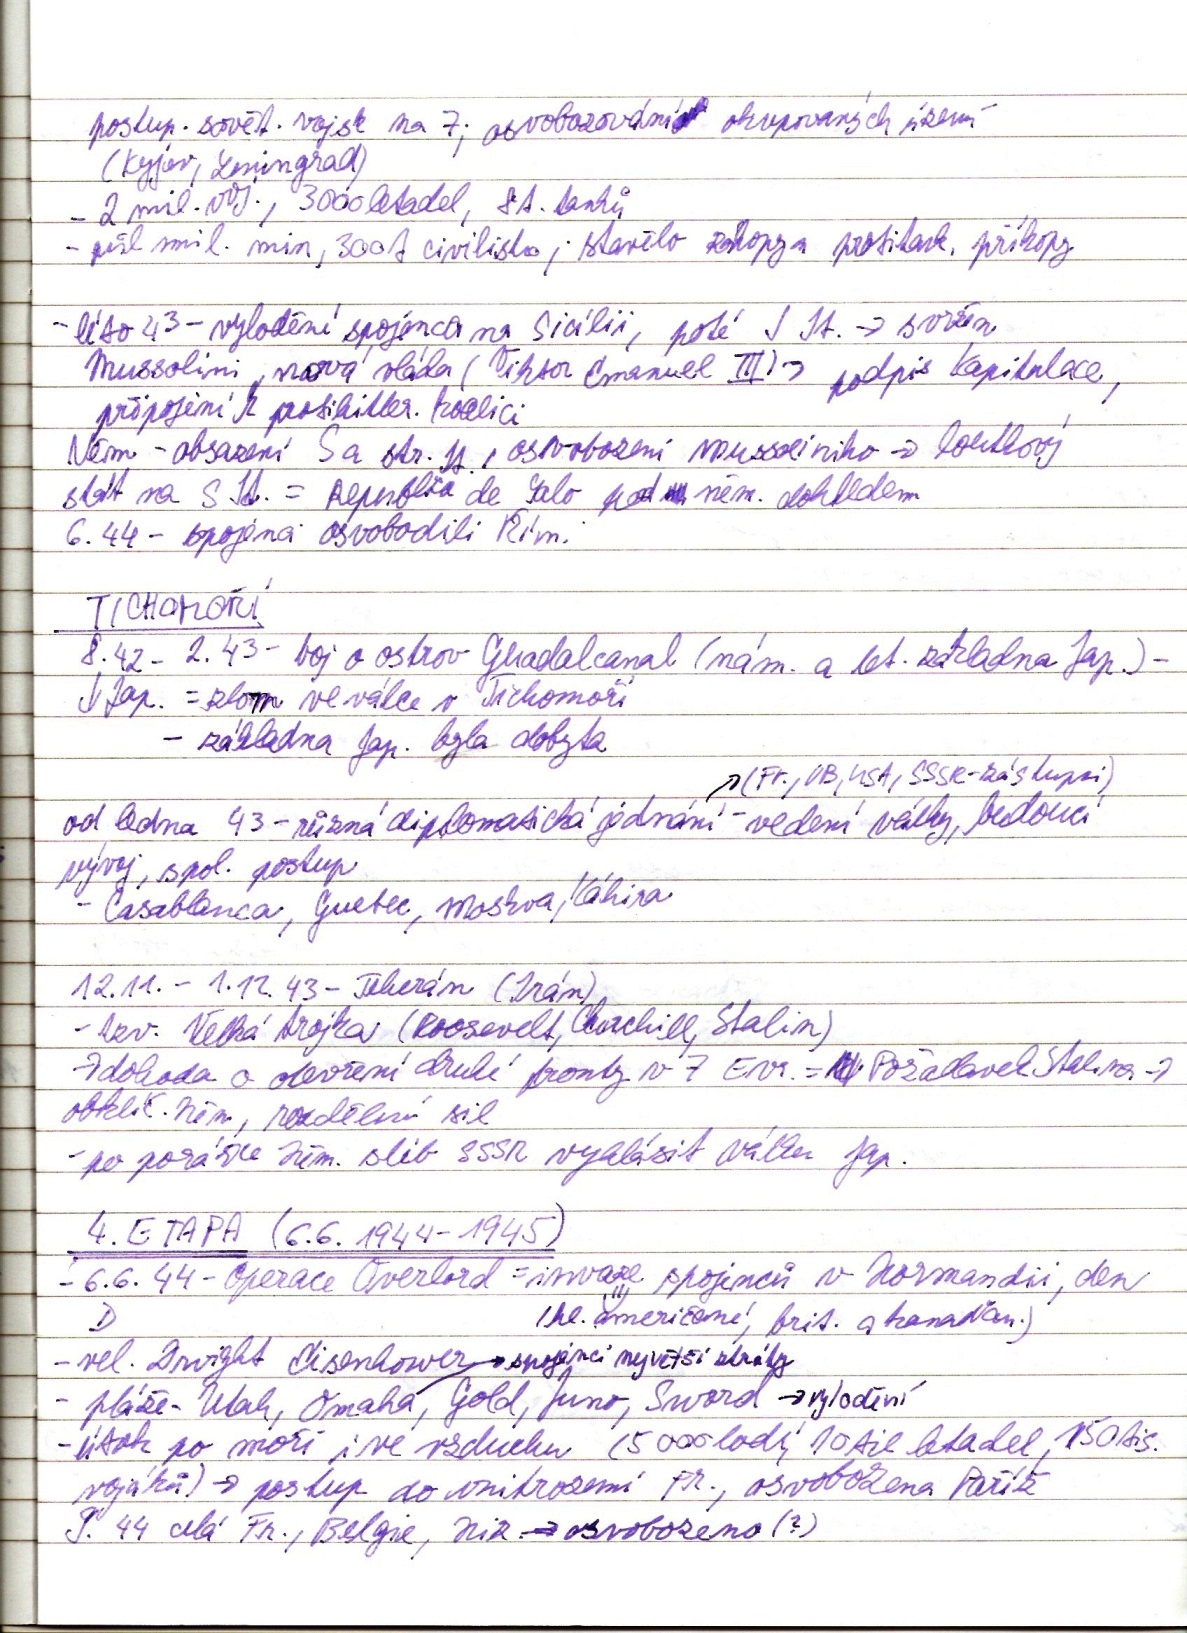 postup. sovět. vojsk na Z; osvobozování okupovaných území
(Kyjev, Leningrad)
- 2 mil. voj., 3000 letadel, 8t. tanků
- půl mil. min, 300t civilistů; stavělo zákopy a protitank. příkopy
- léto 43 - vylodění spojenců na Sicílii, poté J It. → svržen
Mussolini, nová vláda (Viktor Emanuel III) → podpis kapitulace,
připojení k protihitler. koalici
Něm - obsazení S a stř. It., osvobození Mussoliniho → loutkový
stát na S It. = Republika de Salo pod něm. dohledem
6. 44 - spojenci osvobodili Řím.
TICHOMOŘÍ
8. 42 - 2. 43 - boj o ostrov Guadalcanal (nám. a let. základna Jap.) -
↓ Jap. = zlom ve válce v Tichomoří
- základna Jap. byla dobyta
↗ (Fr., VB, USA, SSSR - zástupci)
od ledna 43 - různá diplomatická jednání - vedení války, budoucí
vývoj, spol. postup
- Casablanca, Quebec, Moskva, Káhira
12.11. - 1.12. 43 - Teherán (Írán)
- tzv. Velká trojka (Roosevelt, Churchill, Stalin)
→ dohoda o otevření druhé fronty v Z Evr. = Požadavek Stalina →
obklíč. Něm, rozdělení sil
- po porážce Něm. slib SSSR vyhlásit válku Jap.
4. ETAPA (6.6. 1944 - 1945)
- 6.6. 44 - Operace Overlord = invaze spojenců v Normandii, den
D (hl. američané, brit. a kanaďan.)
- vel. Dwight Eisenhower → spojenci největší ztráty
- pláže - Utah, Omaha, Gold, Juno, Sword → vylodění
- útok po moři i ve vzduchu (5 000 lodí, 10 tis letadel, 150 tis.
vojáků) → postup do vnitrozemí Fr., osvobozena Paříž
P. 44 celá Fr., Belgie, Niz. → osvobozeno (?)